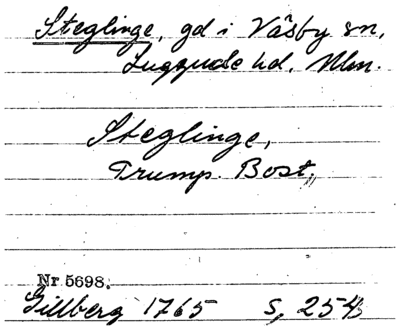 Steglinge, gd i Väsby sn,
Luggude hd. Mlm.
Steglinge,
Trump. Bost.,,
Nr 5698.
Gillberg 1765 s, 254